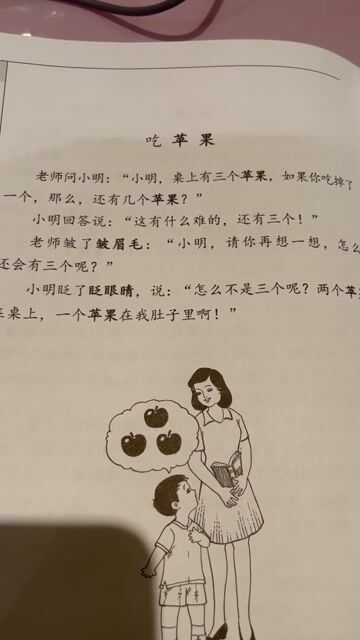 吃 苹 果
老师问小明：“小明，桌上有三个苹果，如果你吃掉了
一个，那么，还有几个苹果？”
小明回答说：“这有什么难的，还有三个！”
老师皱了皱眉毛：“小明，请你再想一想，怎么
还会有三个呢？”
小明眨了眨眼睛，说：“怎么不是三个呢？两个苹
在桌上，一个苹果在我肚子里啊！”